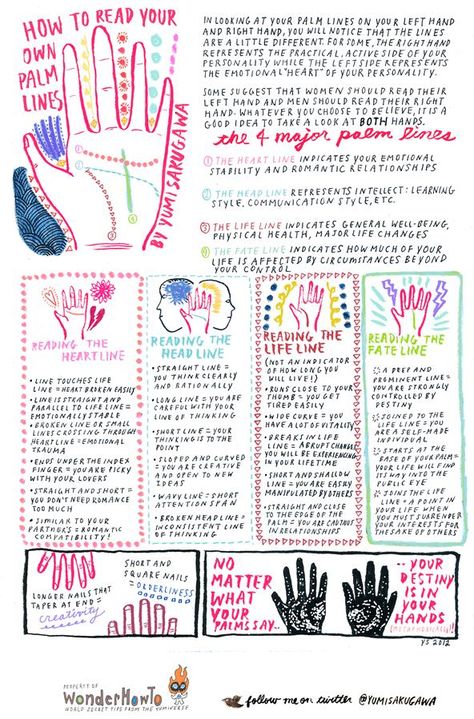 HOW TO READ YOUR
OWN
PALM
LINES
BY YUMI SAKUGAWA
IN LOOKING AT YOUR PALM LINES ON YOUR LEFT HAND
AND RIGHT HAND, YOU WILL NOTICE THAT THE LINES
ARE A LITTLE DIFFERENT. FOR SOME, THE RIGHT HAND
REPRESENTS THE PRACTICAL, ACTIVE SIDE OF YOUR
PERSONALITY WHILE THE LEFT SIDE REPRESENTS
THE EMOTIONAL "HEART" OF YOUR PERSONALITY.
SOME SUGGEST THAT WOMEN SHOULD READ THEIR
LEFT HAND AND MEN SHOULD READ THEIR RIGHT
HAND. WHATEVER YOU CHOOSE TO BELIEVE, IT IS A
GOOD IDEA TO TAKE A LOOK AT BOTH HANDS.
the 4 major palm lines
① THE HEART LINE INDICATES YOUR EMOTIONAL
STABILITY AND ROMANTIC RELATIONSHIPS
② THE HEAD LINE REPRESENTS INTELLECT: LEARNING
STYLE, COMMUNICATION STYLE, ETC.
③ THE LIFE LINE INDICATES GENERAL WELL-BEING,
PHYSICAL HEALTH, MAJOR LIFE CHANGES
④ THE FATE LINE INDICATES HOW MUCH OF YOUR
LIFE IS AFFECTED BY CIRCUMSTANCES BEYOND
YOUR CONTROL
READING THE
HEART LINE
• LINE TOUCHES LIFE
LINE = HEART BROKEN EASILY
• LINE IS STRAIGHT AND
PARALLEL TO LIFE LINE =
EMOTIONALLY STABLE
• BROKEN LINE OR SMALL
LINES CROSSING THROUGH
HEARTLINE = EMOTIONAL
TRAUMA
• ENDS UNDER THE INDEX
FINGER = YOU ARE PICKY
WITH YOUR LOVERS
• STRAIGHT AND SHORT =
YOU DON'T NEED ROMANCE
TOO MUCH
• SIMILAR TO YOUR
PARTNER'S = ROMANTIC
COMPATIBILITY!
READING
THE HEAD LINE
• STRAIGHT LINE =
YOU THINK CLEARLY
AND RATIONALLY
• LONG LINE = YOU ARE
CAREFUL WITH YOUR
LINE OF THINKING
• SHORT LINE = YOUR
THINKING IS TO THE
POINT
• SLOPED AND CURVED
= YOU ARE CREATIVE
AND OPEN TO NEW
IDEAS
• WAVY LINE = SHORT
ATTENTION SPAN
• BROKEN HEAD LINE =
INCONSISTENT LINE
OF THINKING
READING THE
LIFE LINE
(NOT AN INDICATOR
OF HOW LONG YOU
WILL LIVE!)
• RUNS CLOSE TO YOUR
THUMB = YOU GET
TIRED EASILY
• WIDE CURVE = YOU
HAVE A LOT OF VITALITY
• BREAKS IN LIFE
LINE = ABRUPT CHANGES
YOU WILL BE EXPERIENCING
IN YOUR LIFETIME
• SHORT AND SHALLOW
LINE = YOU ARE EASILY
MANIPULATED BY OTHERS
• STRAIGHT AND CLOSE
TO THE EDGE OF THE
PALM = YOU ARE CAUTIOUS
IN RELATIONSHIPS
READING
THE
FATE LINE
A DEEP AND
PROMINENT LINE =
YOU ARE STRONGLY
CONTROLLED BY
DESTINY
JOINED TO THE
LIFE LINE = YOU
ARE A SELF-MADE
INDIVIDUAL
STARTS AT THE
BASE OF YOUR PALM =
YOUR LIFE WILL FIND
ITS WAY INTO THE
PUBLIC EYE
JOINS THE LIFE
LINE = A POINT IN
YOUR LIFE WHEN
YOU MUST SURRENDER
YOUR INTERESTS FOR
THE SAKE OF OTHERS
LONGER NAILS THAT
TAPER AT END =
creativity
SHORT AND
SQUARE NAILS
= ORDERLINESS
NO
MATTER
WHAT
YOUR
PALMS SAY..
.. YOUR
DESTINY
IS IN
YOUR
HANDS
(METAPHORICALLY!)
YS 2012
PROPERTY OF
WonderHowTo
WORLD SECRET TIPS FROM THE YUMIVERSE
follow me on twitter @YUMISAKUGAWA